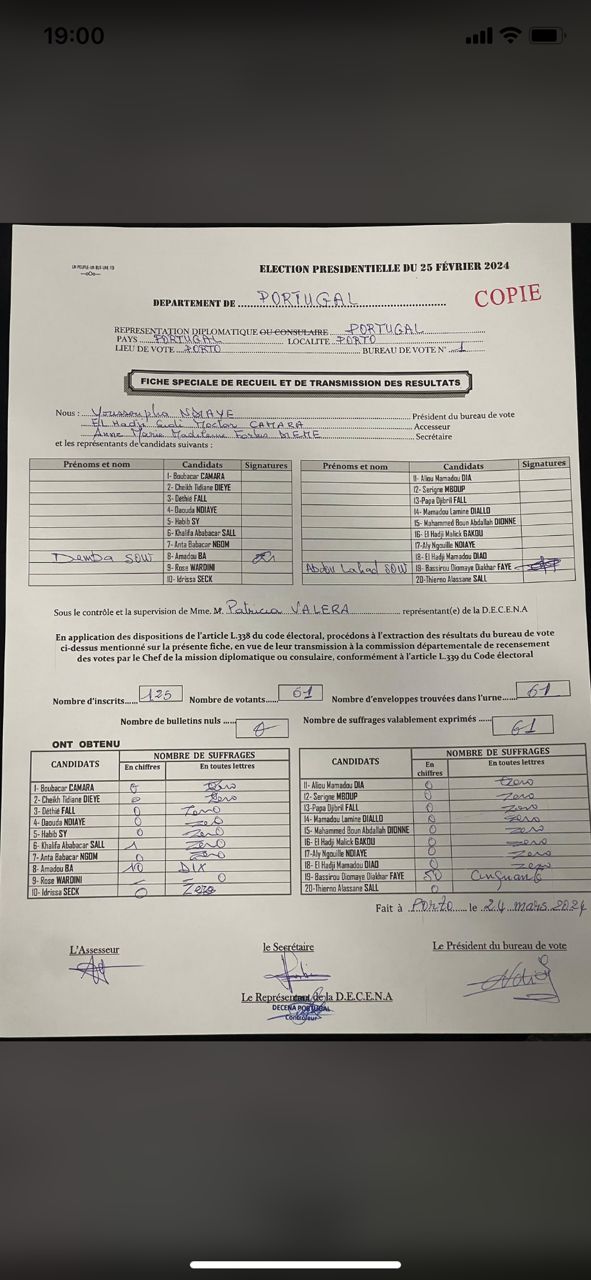 19:00
UN PEUPLE-UN BUT-UNE FOI
—oOo—
ELECTION PRESIDENTIELLE DU 25 FÉVRIER 2024
DEPARTEMENT DE PORTUGAL
COPIE
REPRESENTATION DIPLOMATIQUE OU CONSULAIRE PORTUGAL
PAYS PORTUGAL LOCALITE PORTO
LIEU DE VOTE PORTO BUREAU DE VOTE N° 1
FICHE SPECIALE DE RECUEIL ET DE TRANSMISSION DES RESULTATS
Nous : Youssoupha NDIAYE Président du bureau de vote
EL Hadji Moctar CAMARA Accesseur
Anne Marie Madeleine DIEME Secrétaire
et les représentants de candidats suivants :
Prénoms et nom Candidats Signatures Prénoms et nom Candidats Signatures
1- Boubacar CAMARA 11- Aliou Mamadou DIA
2- Cheikh Tidiane DIEYE 12- Serigne MBOUP
3- Déthié FALL 13-Papa Djibril FALL
4- Daouda NDIAYE 14- Mamadou Lamine DIALLO
5- Habib SY 15- Mahammed Boun Abdallah DIONNE
6- Khalifa Ababacar SALL 16- El Hadji Malick GAKOU
7- Anta Babacar NGOM 17-Aly Ngouille NDIAYE
Demba SOW 8- Amadou BA 18- El Hadji Mamadou DIAO
9- Rose WARDINI Abdou Lahad SOW 19- Bassirou Diomaye Diakhar FAYE
10- Idrissa SECK 20-Thierno Alassane SALL
Sous le contrôle et la supervision de Mme. M. Patricia VALERA représentant(e) de la D.E.C.E.N.A
En application des dispositions de l'article L.338 du code électoral, procédons à l'extraction des résultats du bureau de vote
ci-dessus mentionné sur la présente fiche, en vue de leur transmission à la commission départementale de recensement
des votes par le Chef de la mission diplomatique ou consulaire, conformément à l'article L.339 du Code électoral
Nombre d'inscrits...... 125 Nombre de votants...... 61 Nombre d'enveloppes trouvées dans l'urne...... 61
Nombre de bulletins nuls ...... 0 Nombre de suffrages valablement exprimés ...... 61
ONT OBTENU
CANDIDATS NOMBRE DE SUFFRAGES CANDIDATS NOMBRE DE SUFFRAGES
En chiffres En toutes lettres En chiffres En toutes lettres
1- Boubacar CAMARA 0 Zero 11- Aliou Mamadou DIA 0 zero
2- Cheikh Tidiane DIEYE 0 Zero 12- Serigne MBOUP 0 zero
3- Déthié FALL 0 Zero 13-Papa Djibril FALL 0 zero
4- Daouda NDIAYE 0 zero 14- Mamadou Lamine DIALLO 0 zero
5- Habib SY 0 Zero 15- Mahammed Boun Abdallah DIONNE 0 zero
6- Khalifa Ababacar SALL 1 Zero 16- El Hadji Malick GAKOU 0 zero
7- Anta Babacar NGOM 0 Zero 17-Aly Ngouille NDIAYE 0 zero
8- Amadou BA 10 DIX 18- El Hadji Mamadou DIAO 0 zero
9- Rose WARDINI – 0 19- Bassirou Diomaye Diakhar FAYE 50 Cinquante
10- Idrissa SECK 0 Zero 20-Thierno Alassane SALL 0
Fait à Porto le 24 mars 2024
L'Assesseur le Secrétaire Le Président du bureau de vote
Le Représentant de la D.E.C.E.N.A
DECENA PORTUGAL
Contrôleur